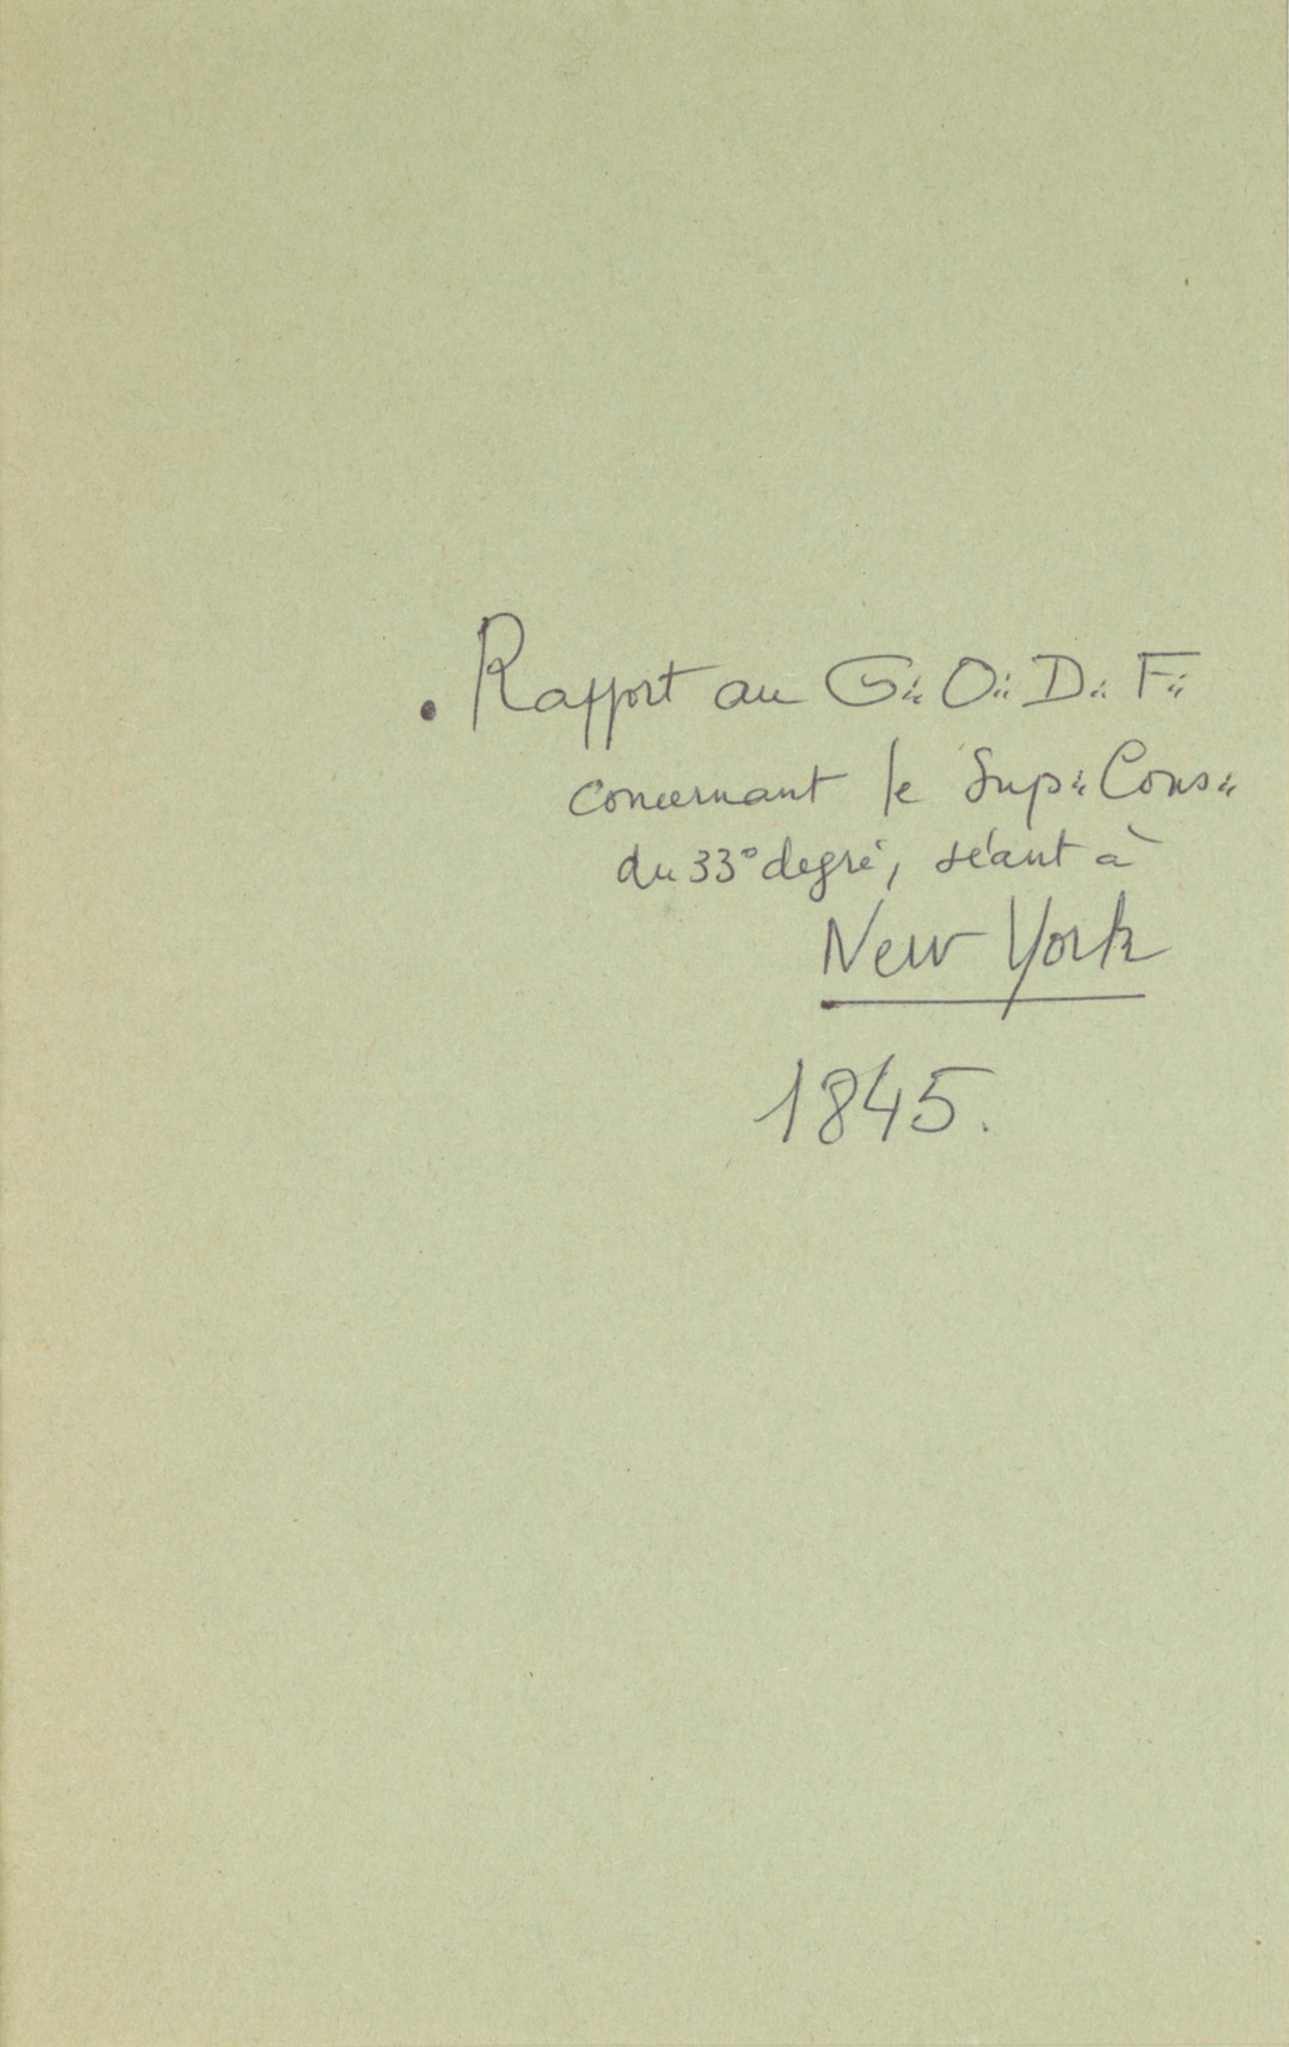 . Rapport au G∴ O∴ D∴ F∴
concernant le Sup∴ Cons∴
du 33° degré, séant à
New York
1845.